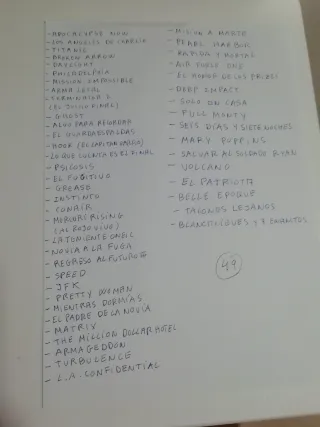 - APOCALYPSE NOW
- LOS ANGELES DE CHARLIE
- TITANIC
- BROKEN ARROW
- DAYLIGHT
- PHILADELPHIA
- MISSION IMPOSSIBLE
- ARMA LETAL
- TERMINATOR 2
(EL JUICIO FINAL)
- GHOST
- ALGO PARA RECORDAR
- EL GUARDAESPALDAS
- HOOK (EL CAPITAN GARFIO)
- LO QUE CUENTA ES EL FINAL
- PSICOSIS
- EL FUGITIVO
- GREASE
- INSTINTO
- CONAIR
- MERCURY RISING
(AL ROJO VIVO)
- LA TENIENTE ONEIL
- NOVIA A LA FUGA
- REGRESO AL FUTURO II
- SPEED
- JFK
- PRETTY WOMAN
- MIENTRAS DORMIAS
- EL PADRE DE LA NOVIA
- MATRIX
- THE MILLION DOLLAR HOTEL
- ARMAGEDDON
- TURBULENCE
- L.A. CONFIDENTIAL
- MISION A MARTE
- PEARL HARBOR
- RAPIDA Y MORTAL
- AIR FORCE ONE
- EL MONJE DE LOS
- DEEP IMPACT
- SOLO EN CASA
- FULL MONTY
- SEYS DIAS Y SIETE NOCHES
- MARY POPPINS
- SALVAR AL SOLDADO RYAN
- VOLCANO
- EL PATRIOTA
- BELLE EPOQUE
- TACONES LEJANOS
- BLANCANIEVES Y 7 ENANITOS
49